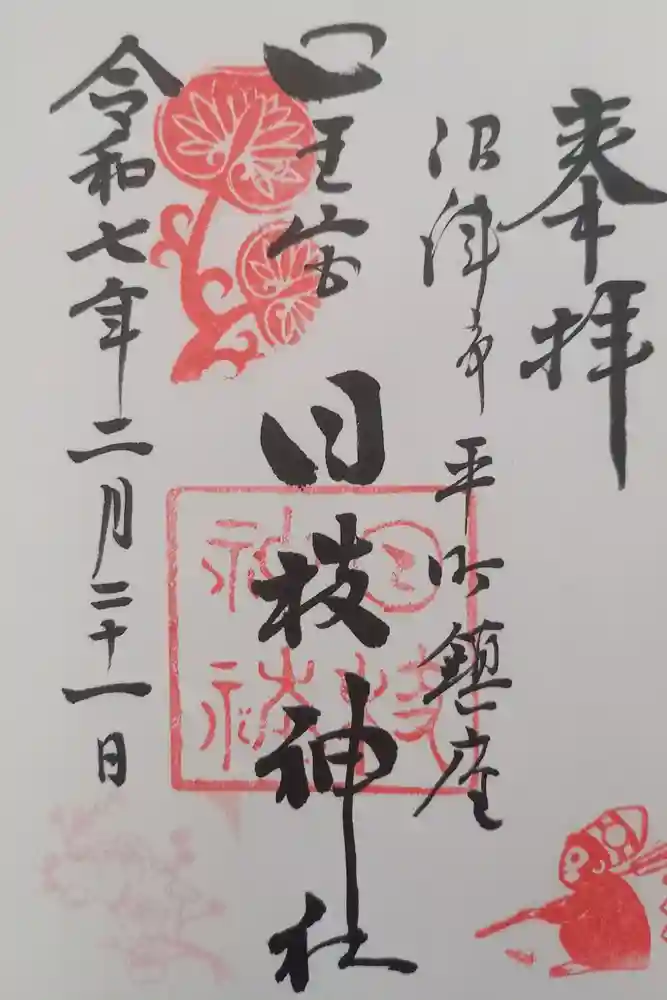 奉拝
沼津市平町鎮座
山王宮
日枝神社
日枝神社
令和七年二月二十一日